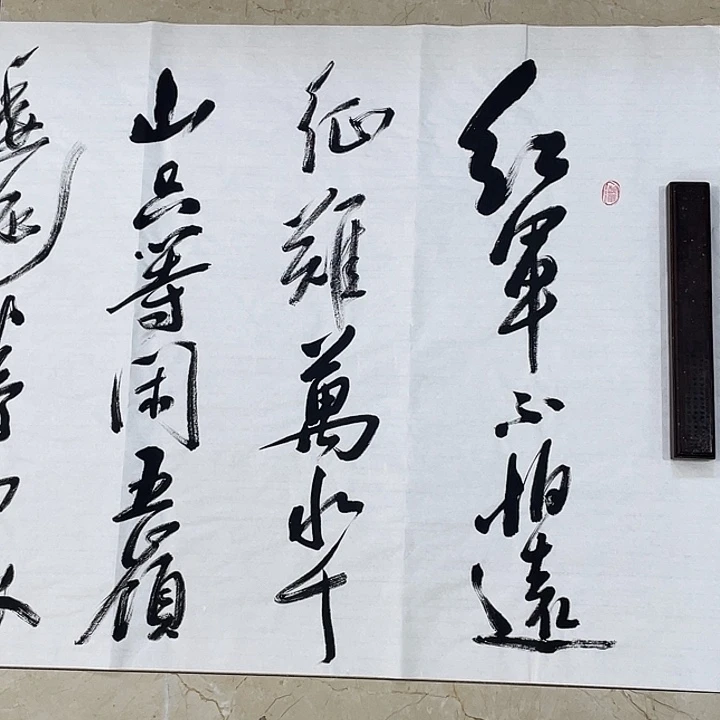 紅軍不怕遠
征難萬水千
山只等闲五嶺
逶迤